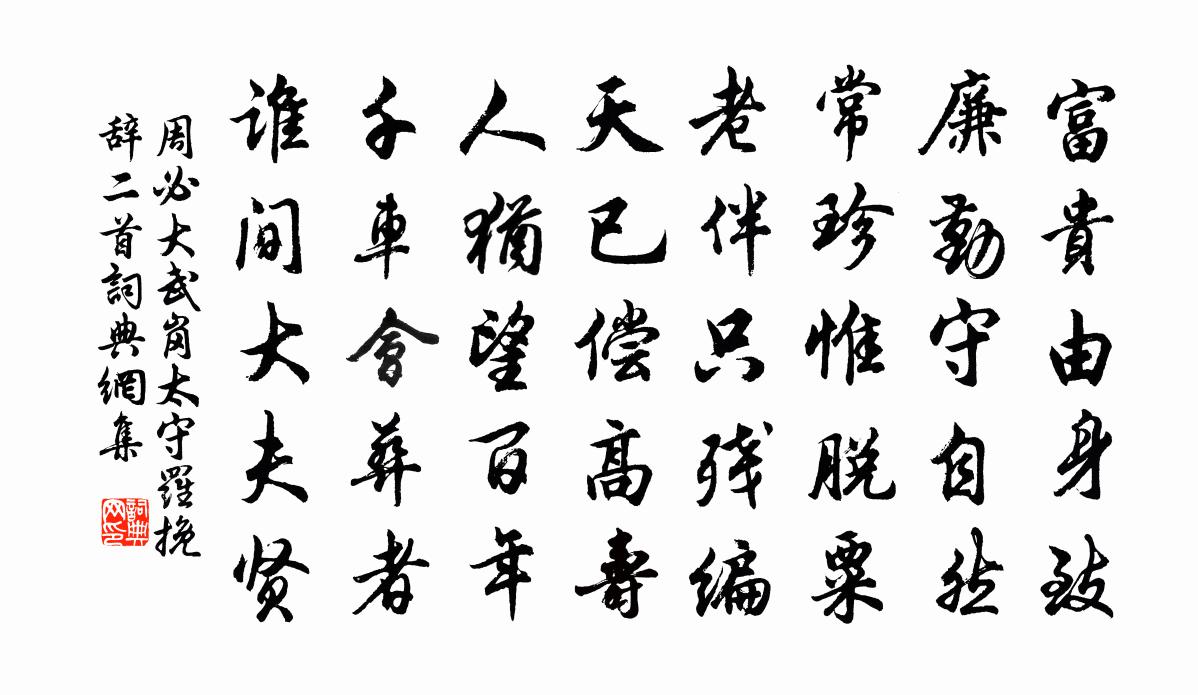 富貴由身致
廉勤守自然
常珍惟脱粟
老伴只残编
天已偿高壽
人猶望百年
千車會葬者
誰间大夫贤
周必大武岗太守羅挽
辞二首詞典網集
詞典
网印